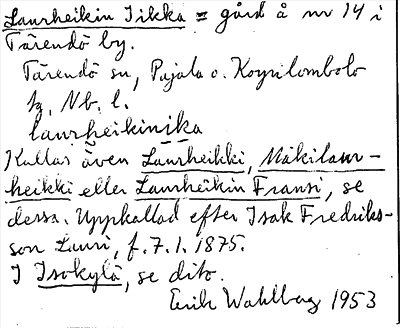 Laurheikin Iikka = gård å nr 14 i
Tärendö by.
Tärendö sn, Pajala o. Korpilombolo
tg, Nb. l.
laurheikinika
Kallas även Laurheikki, Mäkilaur-
heikki eller Laurheikin Fransi, se
dessa. Uppkallad efter Isak Fredriks-
son Lauri, f. 7.1. 1875.
I Isokylä, se dito.
Erik Wahlberg 1953